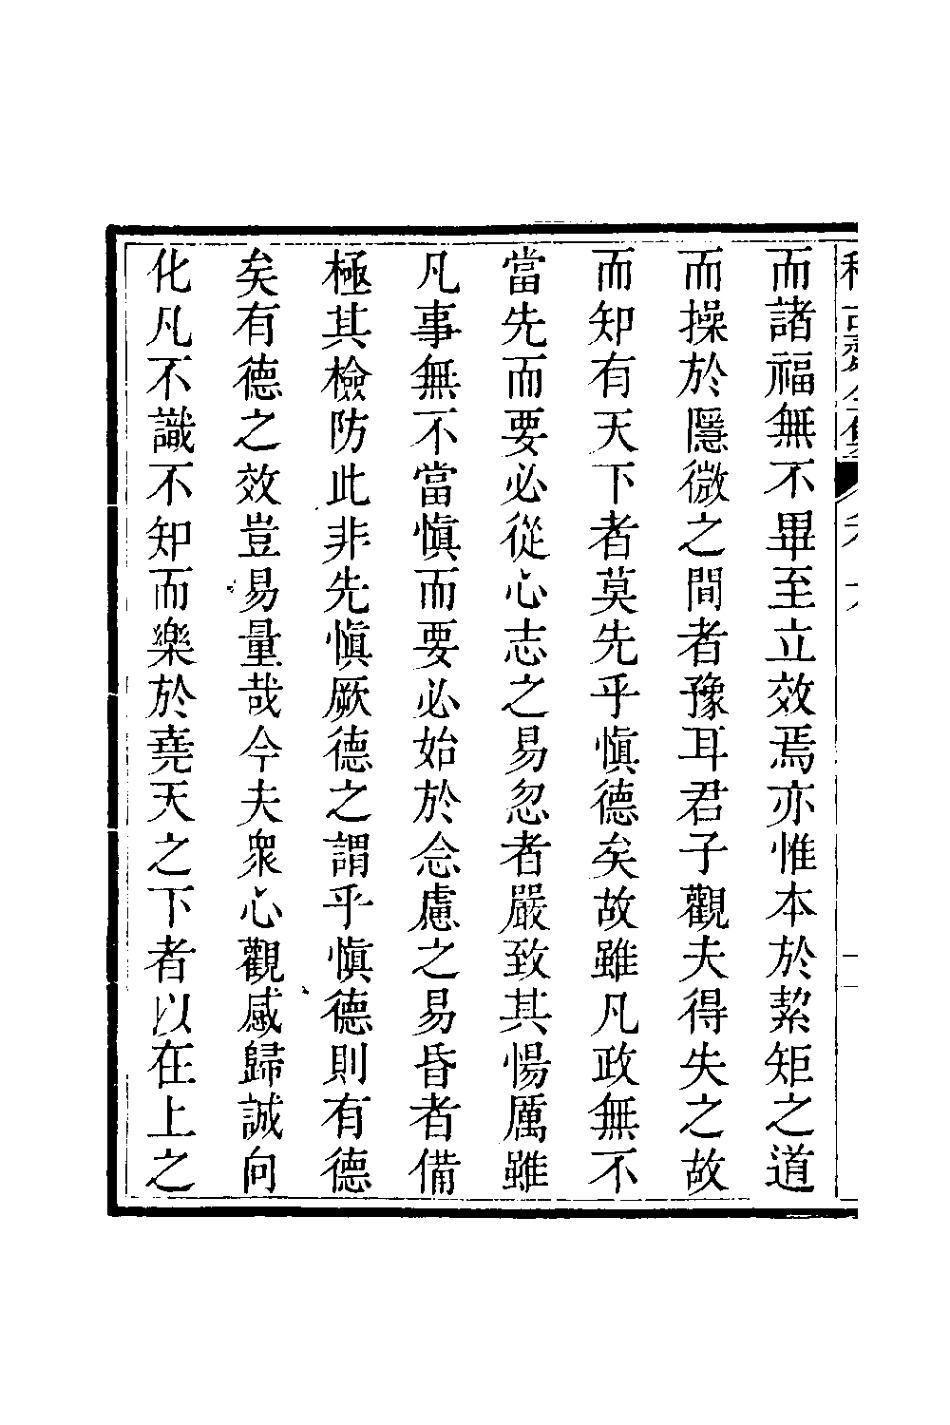 而諸福無不畢至立效焉亦惟本於絜矩之道
而操於隱微之間者豫耳君子觀夫得失之故
而知有天下者莫先乎慎德矣故雖凡政無不
當先而要必從心志之易忽者嚴致其惕厲雖
凡事無不當慎而要必始於念慮之易昏者備
極其檢防此非先慎厥德之謂乎慎德則有德
矣有德之效豈易量哉今夫衆心觀感歸誠向
化凡不識不知而樂於堯天之下者以在上之